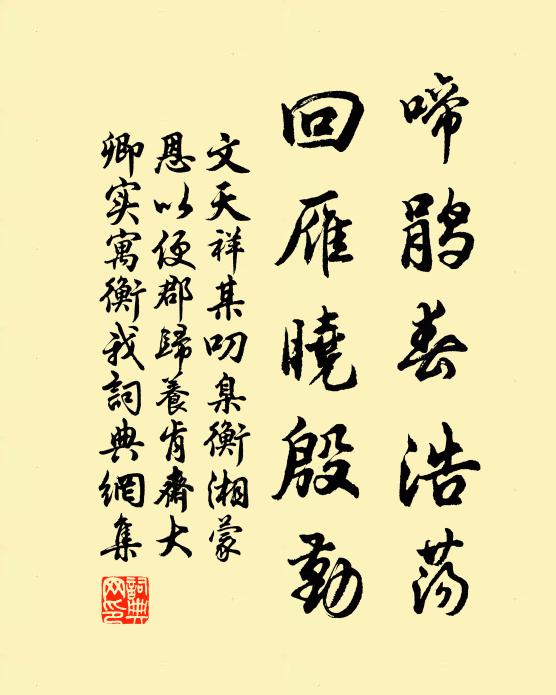 啼鹃春浩荡
回雁曉殷勤
文天祥某叨臬衡湘蒙
恩以便郡歸養肯齋大
卿实寓衡我詞典網集
詞典网印